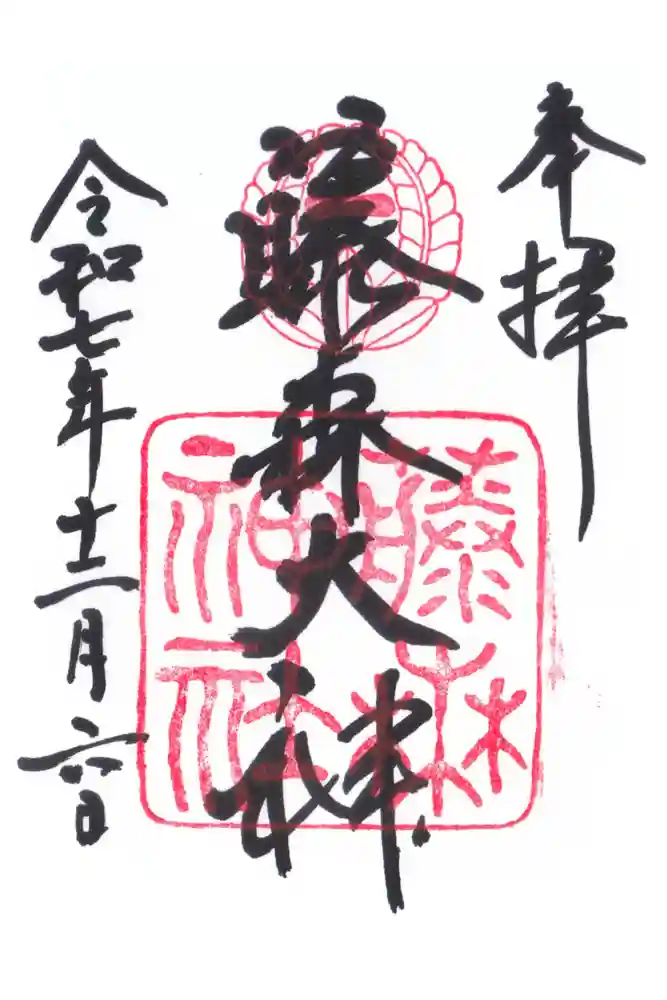 奉拝
藤森大神
令和七年十二月六日
藤森
神社